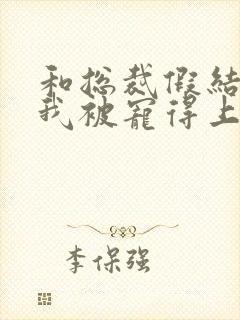 和总裁假结
我被宠得上
李保强